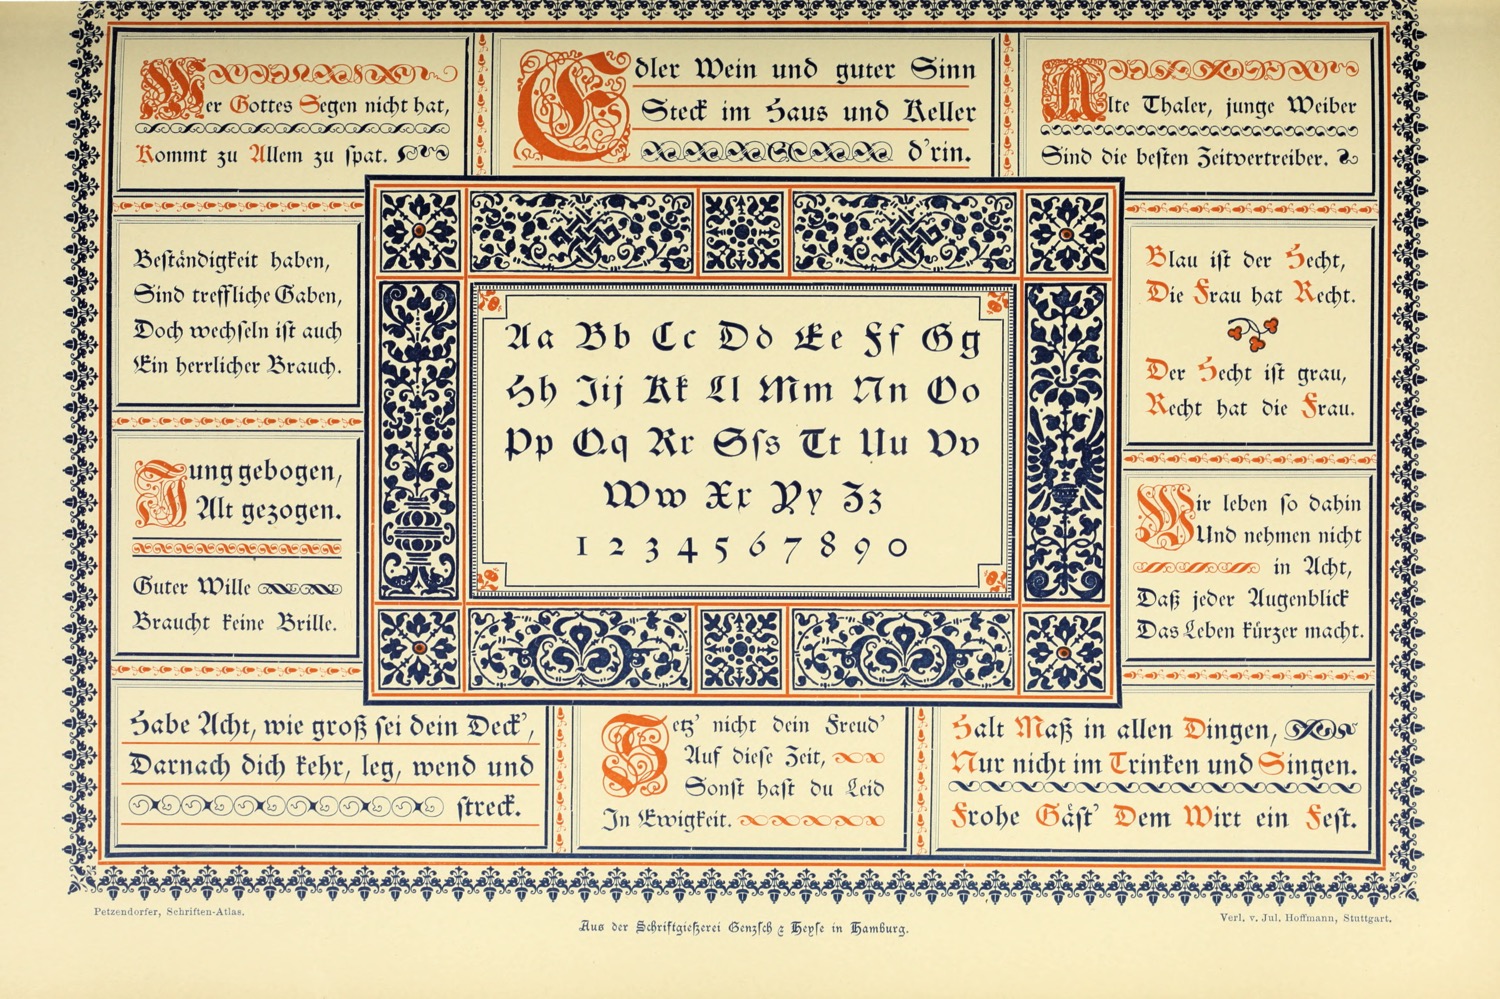 Wer Gottes Segen nicht hat,
Kommt zu Allem zu spat.
Edler Wein und guter Sinn
Steck im Haus und Keller
d'rin.
Alte Thaler, junge Weiber
Sind die besten Zeitvertreiber.
Beständigkeit haben,
Sind treffliche Gaben,
Doch wechseln ist auch
Ein herrlicher Brauch.
Jung gebogen,
Alt gezogen.
Guter Wille
Braucht keine Brille.
Aa Bb Cc Dd Ee Ff Gg
Hh Iij Kk Ll Mm Nn Oo
Pp Qq Rr Sſs Tt Uu Vv
Ww Xx Yy Zz
1 2 3 4 5 6 7 8 9 0
Blau ist der Hecht,
Die Frau hat Recht.
Der Hecht ist grau,
Recht hat die Frau.
Wir leben so dahin
Und nehmen nicht
in Acht,
Daß jeder Augenblick
Das Leben kürzer macht.
Habe Acht, wie groß sei dein Deck',
Darnach dich kehr, leg, wend und
streck.
Setz' nicht dein Freud'
Auf diese Zeit,
Sonst hast du Leid
In Ewigkeit.
Halt Maß in allen Dingen,
Nur nicht im Trinken und Singen.
Frohe Gäst' Dem Wirt ein Fest.
Petzendorfer, Schriften-Atlas.
Verl. v. Jul. Hoffmann, Stuttgart.
Aus der Schriftgießerei Genzsch & Heyse in Hamburg.